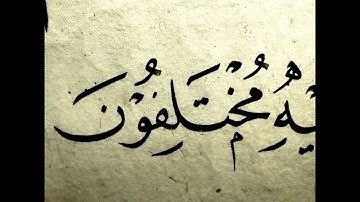 يْهِ مُخْتَلِفُونَ